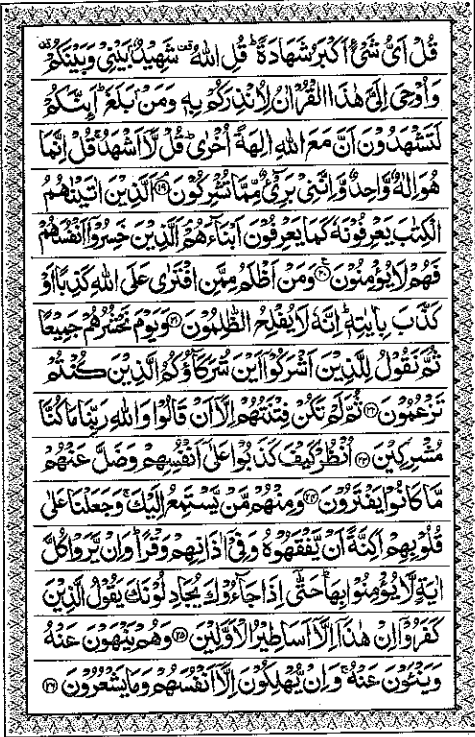 قُلْ اَیُّ شَیْءٍ اَكْبَرُ شَهَادَةً ؕ قُلِ اللّٰهُ ۙ۫ شَهِیْدٌۢ بَیْنِیْ وَبَیْنَكُمْ ۫
وَاُوْحِیَ اِلَیَّ هٰذَا الْقُرْاٰنُ لِاُنْذِرَكُمْ بِهٖ وَمَنْۢ بَلَغَ ؕ اَئِنَّكُمْ
لَتَشْهَدُوْنَ اَنَّ مَعَ اللّٰهِ اٰلِهَةً اُخْرٰی ؕ قُلْ لَّاۤ اَشْهَدُ ۚ قُلْ اِنَّمَا
هُوَ اِلٰهٌ وَّاحِدٌ وَّاِنَّنِیْ بَرِیْٓءٌ مِّمَّا تُشْرِكُوْنَ ﴿۱۹﴾ اَلَّذِیْنَ اٰتَیْنٰهُمُ
الْكِتٰبَ یَعْرِفُوْنَهٗ كَمَا یَعْرِفُوْنَ اَبْنَآءَهُمْ ۘ اَلَّذِیْنَ خَسِرُوْۤا اَنْفُسَهُمْ
فَهُمْ لَا یُؤْمِنُوْنَ ﴿۲۰﴾ وَمَنْ اَظْلَمُ مِمَّنِ افْتَرٰی عَلَی اللّٰهِ كَذِبًا اَوْ
كَذَّبَ بِاٰیٰتِهٖ ؕ اِنَّهٗ لَا یُفْلِحُ الظّٰلِمُوْنَ ﴿۲۱﴾ وَیَوْمَ نَحْشُرُهُمْ جَمِیْعًا
ثُمَّ نَقُوْلُ لِلَّذِیْنَ اَشْرَكُوْۤا اَیْنَ شُرَكَآؤُكُمُ الَّذِیْنَ كُنْتُمْ
تَزْعُمُوْنَ ﴿۲۲﴾ ثُمَّ لَمْ تَكُنْ فِتْنَتُهُمْ اِلَّاۤ اَنْ قَالُوْا وَاللّٰهِ رَبِّنَا مَا كُنَّا
مُشْرِكِیْنَ ﴿۲۳﴾ اُنْظُرْ كَیْفَ كَذَبُوْا عَلٰۤی اَنْفُسِهِمْ وَضَلَّ عَنْهُمْ
مَّا كَانُوْا یَفْتَرُوْنَ ﴿۲۴﴾ وَمِنْهُمْ مَّنْ یَّسْتَمِعُ اِلَیْكَ ۚ وَجَعَلْنَا عَلٰی
قُلُوْبِهِمْ اَكِنَّةً اَنْ یَّفْقَهُوْهُ وَفِیْۤ اٰذَانِهِمْ وَقْرًا ؕ وَاِنْ یَّرَوْا كُلَّ
اٰیَةٍ لَّا یُؤْمِنُوْا بِهَا ؕ حَتّٰۤی اِذَا جَآءُوْكَ یُجَادِلُوْنَكَ یَقُوْلُ الَّذِیْنَ
كَفَرُوْۤا اِنْ هٰذَاۤ اِلَّاۤ اَسَاطِیْرُ الْاَوَّلِیْنَ ﴿۲۵﴾ وَهُمْ یَنْهَوْنَ عَنْهُ
وَیَنْـَٔوْنَ عَنْهُ ۚ وَاِنْ یُّهْلِكُوْنَ اِلَّاۤ اَنْفُسَهُمْ وَمَا یَشْعُرُوْنَ ﴿۲۶﴾